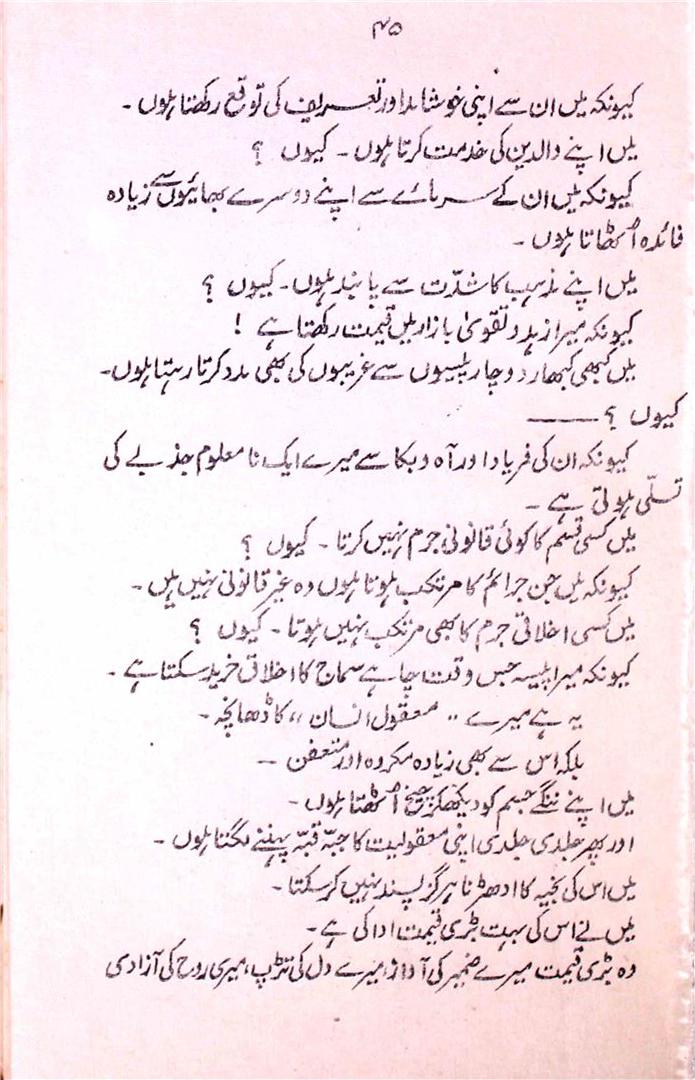 ۴۵
کیونکہ میں ان سے اپنی خوشامد اور تعریف کی توقع رکھتا ہوں ۔
میں اپنے والدین کی خدمت کرتا ہوں ۔ کیوں ؟
کیونکہ میں ان کے سرمائے سے اپنے دوسرے بھائیوں سے زیادہ
فائدہ اٹھاتا ہوں ۔
میں اپنے مذہب کا شدّت سے پابند ہوں ۔ کیوں ؟
کیونکہ میرا زہد و تقویٰ بازار میں قیمت رکھتا ہے !
میں کبھی کبھار دو چار پیسوں سے غریبوں کی بھی مدد کرتا رہتا ہوں۔
کیوں ؟ ——
کیونکہ ان کی فریاد اور آہ و بکا سے میرے ایک نا معلوم جذبے کی
تسلّی ہوتی ہے ۔
میں کسی قسم کا کوئی قانونی جرم نہیں کرتا ۔ کیوں ؟
کیونکہ میں جن جرائم کا مرتکب ہوتا ہوں وہ غیر قانونی نہیں ہیں ۔
میں کسی اخلاقی جرم کا بھی مرتکب نہیں ہوتا ۔ کیوں ؟
کیونکہ میرا پیسہ جس وقت چاہے سماج کا اخلاق خرید سکتا ہے ۔
یہ ہے میرے ”معقول انسان“ کا ڈھانچہ ۔
بلکہ اس سے بھی زیادہ مکروہ اور متعفن ۔
میں اپنے ننگے جسم کو دیکھ کر چیخ اٹھتا ہوں ۔
اور پھر جلدی جلدی اپنی معقولیت کا جبّہ قبّہ پہننے لگتا ہوں ۔
میں اس کی بخیہ کا ادھڑنا ہرگز پسند نہیں کر سکتا ۔
میں نے اس کی بہت بڑی قیمت ادا کی ہے ۔
وہ بڑی قیمت میرے ضمیر کی آواز، میرے دل کی تڑپ، میری روح کی آزادی